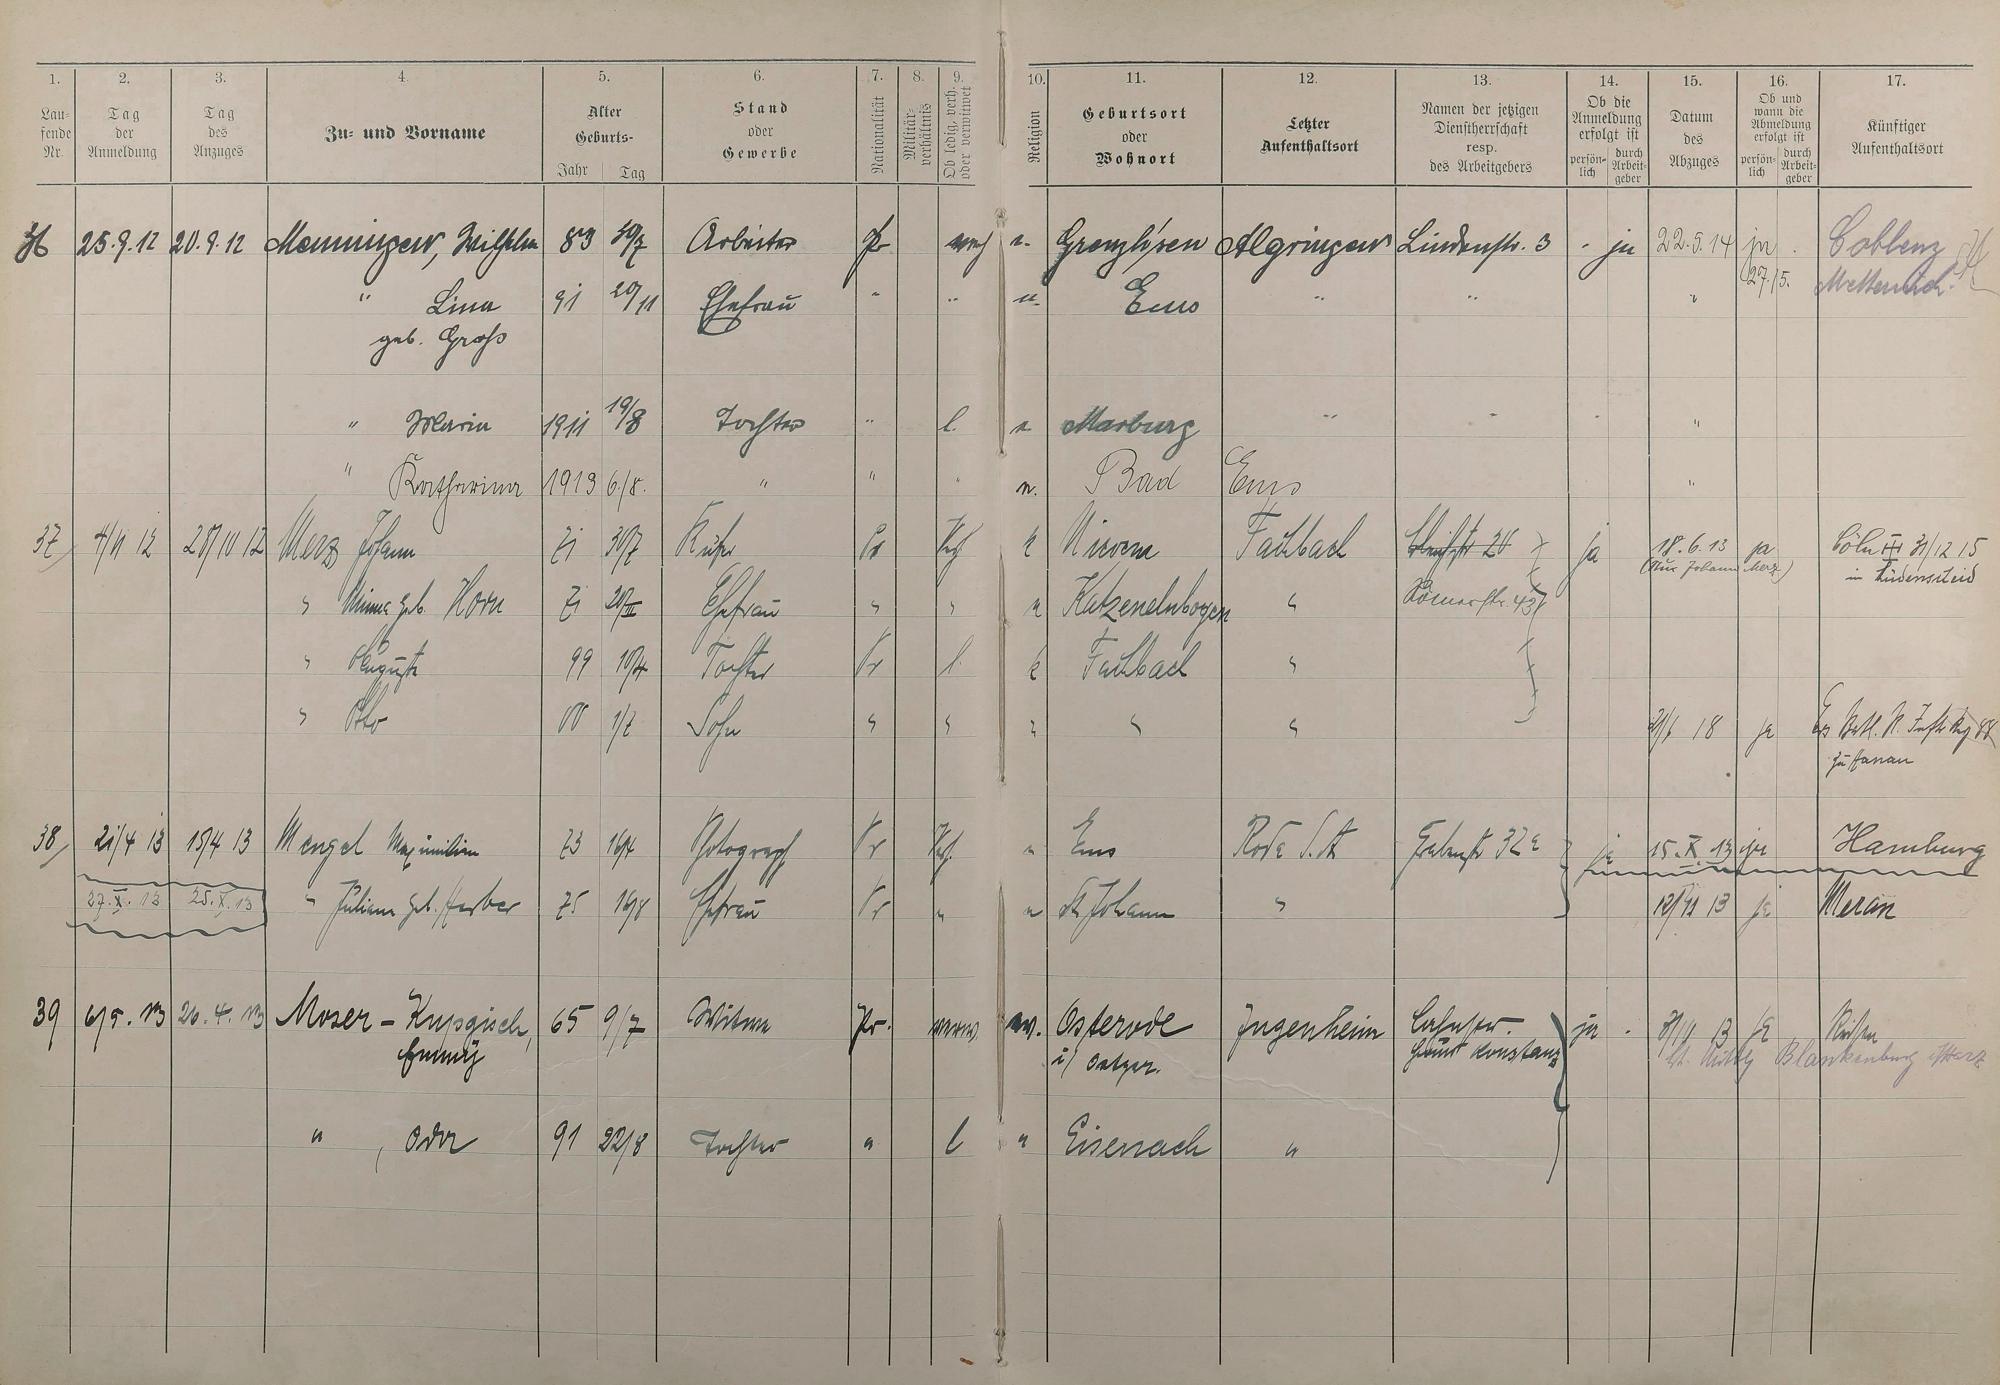 1. 2. 3. 4. 5. 6. 7. 8. 9. 10. 11. 12. 13. 14. 15. 16. 17.
Lau-
fende
Nr.
Tag
der
Anmeldung
Tag
des
Anzuges
Zu- und Vorname
Alter
Geburts-
Jahr Tag
Stand
oder
Gewerbe
Nationalität
Militär-
verhältnis
Ob ledig, verh.
oder verwitwet
Religion
Geburtsort
oder
Wohnort
Letzter
Aufenthaltsort
Namen der jetzigen
Dienstherrschaft
resp.
des Arbeitgebers
Ob die
Anmeldung
erfolgt ist
persön-
lich
durch
Arbeit-
geber
Datum
des
Abzuges
Ob und
wann die
Abmeldung
erfolgt ist
persön-
lich
durch
Arbeit-
geber
Künftiger
Aufenthaltsort
36 25.9.12 20.9.12 Menningen, Wilhelm 83 Arbeiter Pr Algringen Lindenstr. 3 - ja 22.5.14 ja Coblenz
27/5. Metternich
" Lina 91 20/11 Ehefrau " " " Ems " " "
geb. Groß
" Maria 1911 19/8 Tochter " l. Marburg " " "
" Katharina 1913 6./8. " " " Bad Ems "
37 4/11 12 28/10 12 Merz Johann 71 30/7 Küfer Pr k Nievern Fachbach 20 ja 18.6.13 ja Cöln III 31/12 15
(Nur Johann Merz) in Lüdenscheid
" Minna geb. Horn 71 Ehefrau " " Katzenelnbogen " Römerstr. 43
" Auguste 99 10/4 Tochter Pr l. k Fachbach "
" Otto 00 1/7 Sohn " " " " " 18 ja
zu Hanau
38 21/4 13 15/4 13 Mengel Maximilian 73 16/4 Photograph Pr " Ems Grabenstr 32a ja 15.X.13 ja Hamburg
27.X.13 25.X.13 " Juliane geb. Herber 75 16/8 Ehefrau Pr " " St Johann " 13 ja Meran
39 6/5. 13 26.4.13 Moser - 65 9/7 Witwe Pr. verw. ev. Osterode Jugenheim Lahnstr. ja - 13 ja
Emmy i/ Ostpr. Haus Konstanz Blankenburg Harz
" , Oda 91 22/8 Tochter " l " Eisenach "